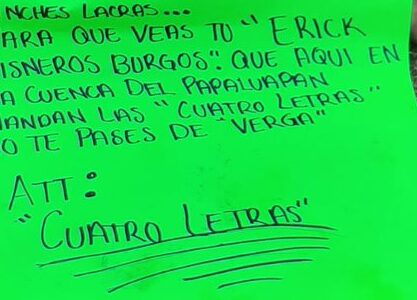 NCHES LACRAS...
ARA QUE VEAS TU " ERICK
ISNEROS BURGOS". QUE AQUI EN
A CUENCA DEL PAPALUAPAN
ANDAN LAS "CUATRO LETRAS"
O TE PASES DE "VERGA"
ATT:
"CUATRO LETRAS"